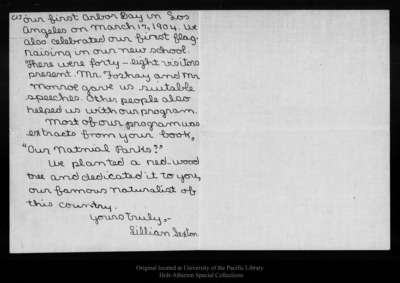 (2) our first Arbor Day in Los
Angeles on March 17, 1904. We
also celebrated our first flag-
raising in our new school.
There were forty-eight visitors
present. Mr. Foshay and Mr.
Monroe gave us suitable
speeches. Other people also
helped us with our program.
Most of our program was
extracts from your book,
"Our National Parks."
We planted a red-wood
tree and dedicated it to you,
our famous naturalist of
this country.
Yours truly,-
Lillian Sexton
Original located at University of the Pacific Library
Holt-Atherton Special Collections